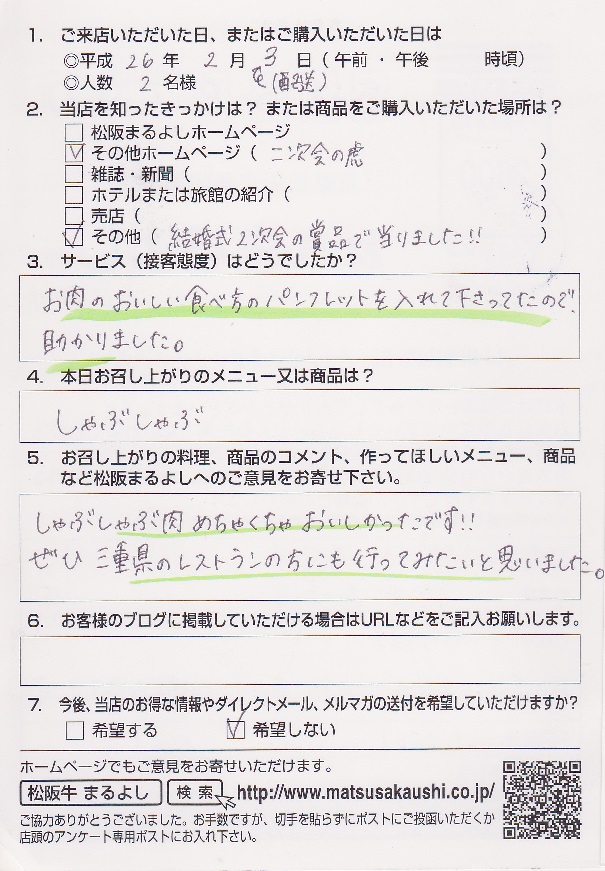 1. ご来店いただいた日、またはご購入いただいた日は
◎平成 26 年 2 月 3 日 ( 午前 ・ 午後 時頃)
◎人数 2 名様 (配送)
2. 当店を知ったきっかけは? または商品をご購入いただいた場所は?
松阪まるよしホームページ
その他ホームページ ( 二次会の虎 )
雑誌・新聞 ( )
ホテルまたは旅館の紹介 ( )
売店 ( )
その他 ( 結婚式2次会の賞品で当りました!! )
3. サービス(接客態度)はどうでしたか?
お肉のおいしい食べ方のパンフレットを入れて下さってたので、
助かりました。
4. 本日お召し上がりのメニュー又は商品は?
しゃぶしゃぶ
5. お召し上がりの料理、商品のコメント、作ってほしいメニュー、商品
など松阪まるよしへのご意見をお寄せ下さい。
しゃぶしゃぶ肉 めちゃくちゃ おいしかったです!!
ぜひ 三重県のレストランの方にも行ってみたいと思いました。
6. お客様のブログに掲載していただける場合はURLなどをご記入お願いします。
7. 今後、当店のお得な情報やダイレクトメール、メルマガの送付を希望していただけますか?
希望する 希望しない
ホームページでもご意見をお寄せいただけます。
松阪牛 まるよし 検索 http://www.matsusakaushi.co.jp/
ご協力ありがとうございました。お手数ですが、切手を貼らずにポストにご投函いただくか
店頭のアンケート専用ポストにお入れ下さい。